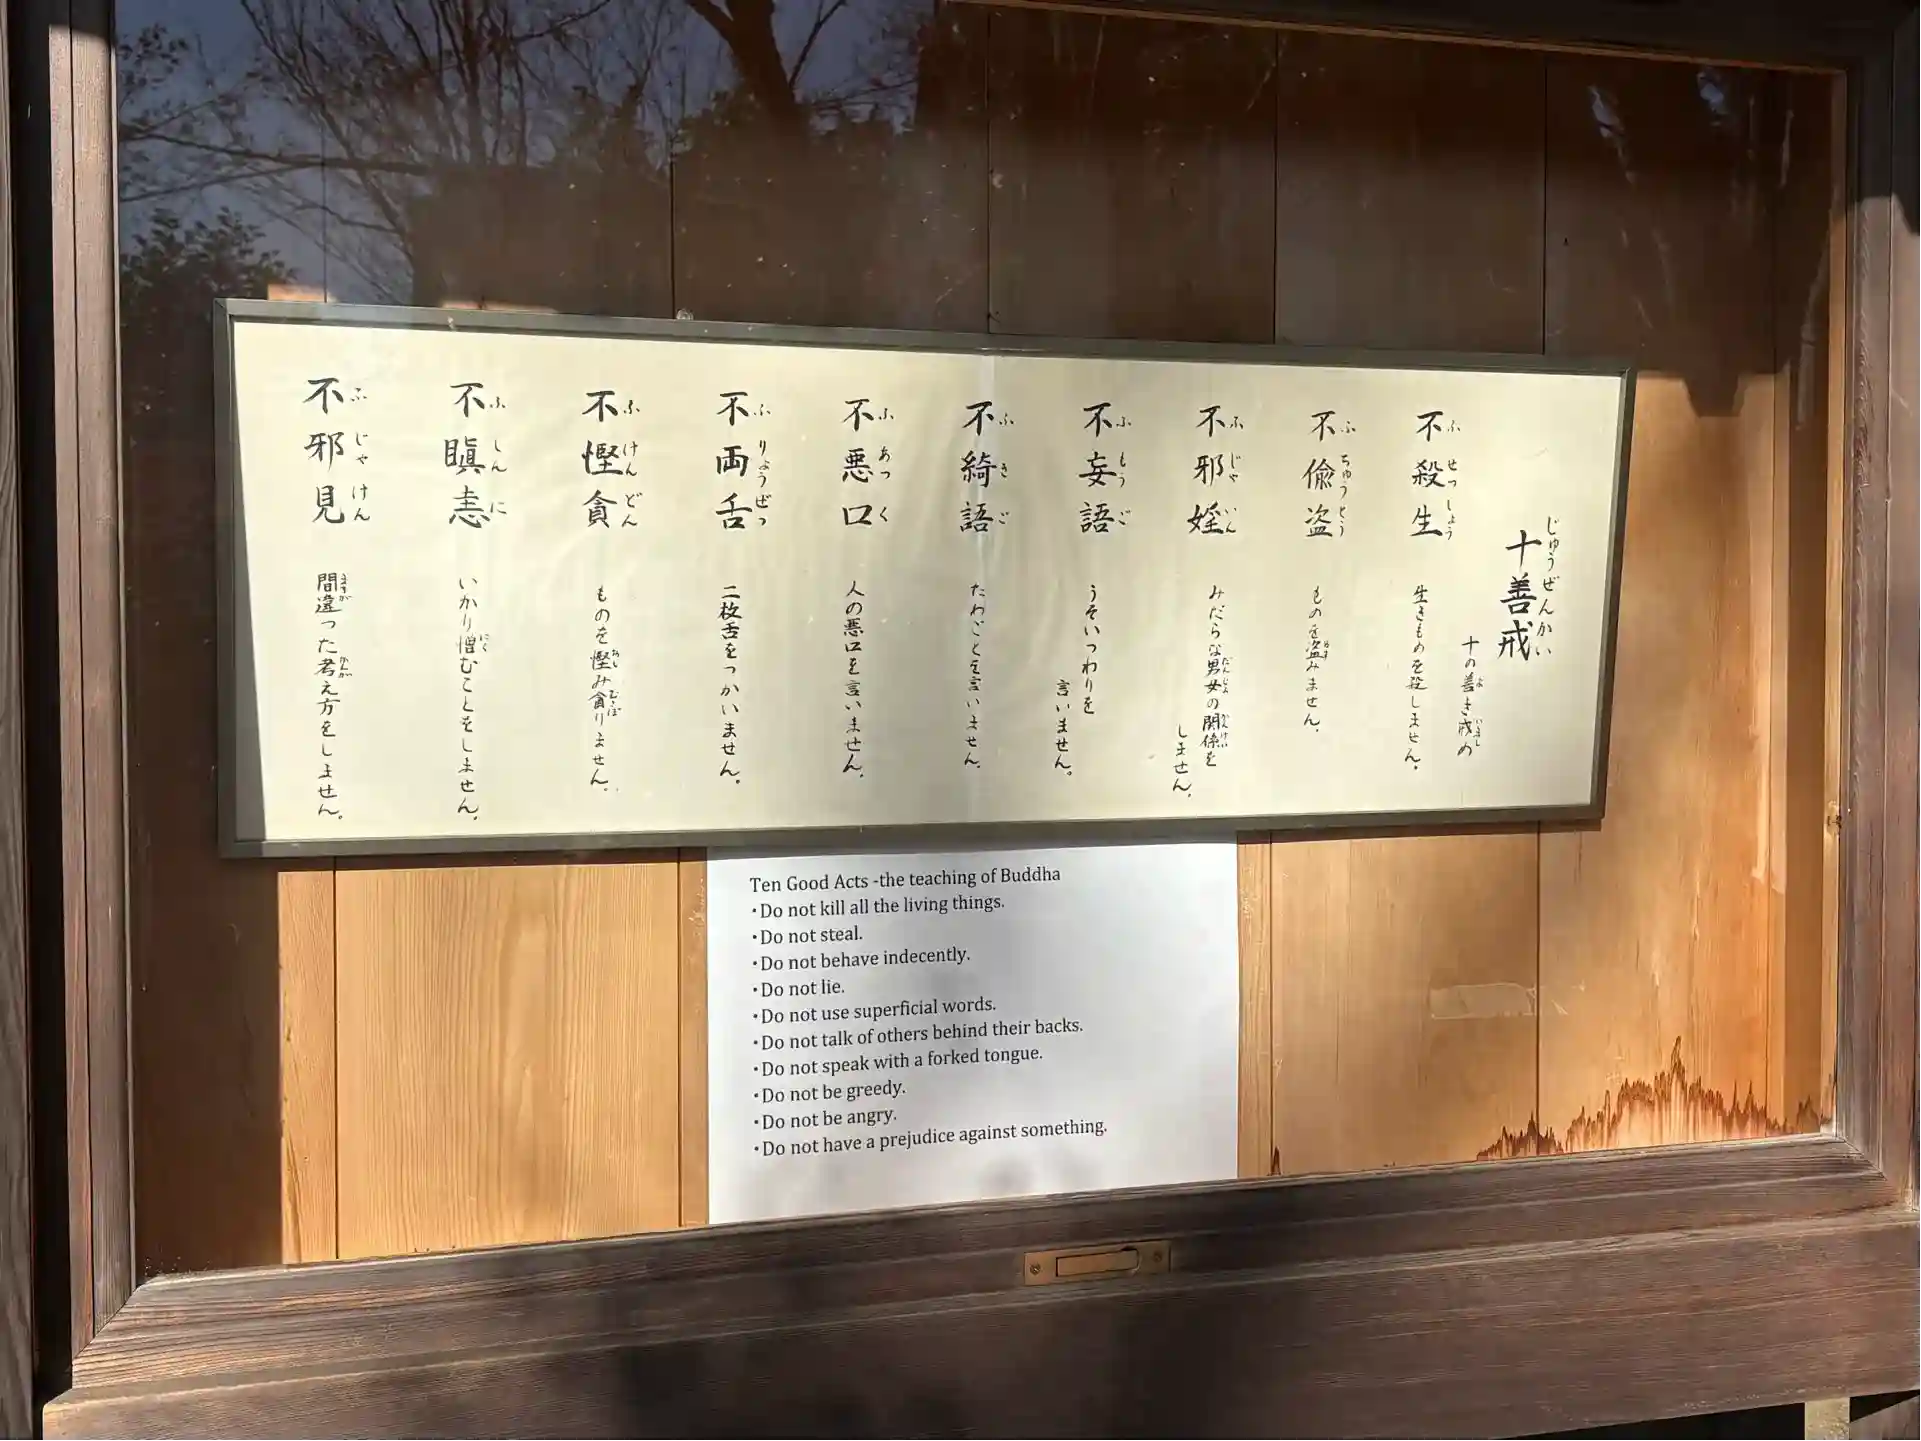 十善戒
じゅうぜんかい
十の善き戒め
よ
いまし
不殺生
ふせっしょう
生きものを殺しません。
不偸盗
ふちゅうとう
ものを盗みません。
ぬす
不邪婬
ふじゃいん
みだらな男女の関係を
だんじょ
かんけい
しません。
不妄語
ふもうご
うそいつわりを
言いません。
不綺語
ふきご
たわごとを言いません。
不悪口
ふあっく
人の悪口を言いません。
不両舌
ふりょうぜつ
二枚舌をつかいません。
不慳貪
ふけんどん
ものを慳み貪りません。
おし
むさぼ
不瞋恚
ふしんに
いかり憎むことをしません。
にく
不邪見
ふじゃけん
間違った考え方をしません。
まちが
かんが
Ten Good Acts -the teaching of Buddha
・Do not kill all the living things.
・Do not steal.
・Do not behave indecently.
・Do not lie.
・Do not use superficial words.
・Do not talk of others behind their backs.
・Do not speak with a forked tongue.
・Do not be greedy.
・Do not be angry.
・Do not have a prejudice against something.